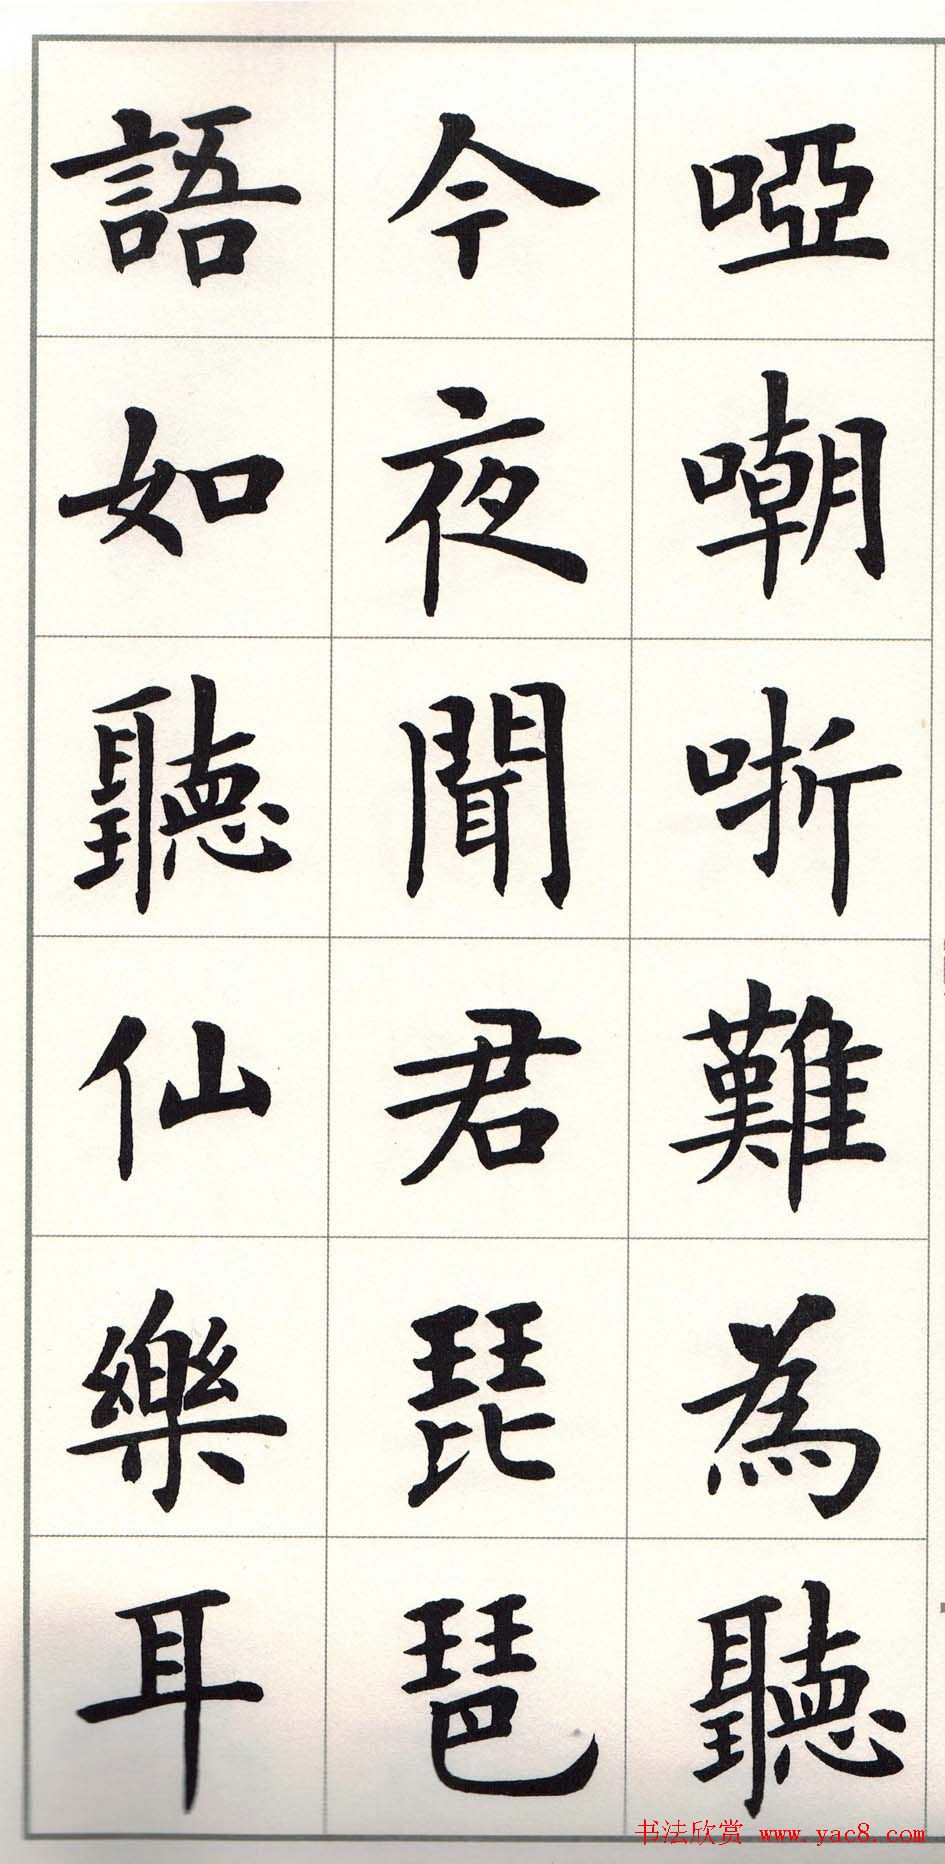 啞嘲哳難為聽
今夜聞君琵琶
語如聽仙樂耳
书法欣赏 www.yac8.com